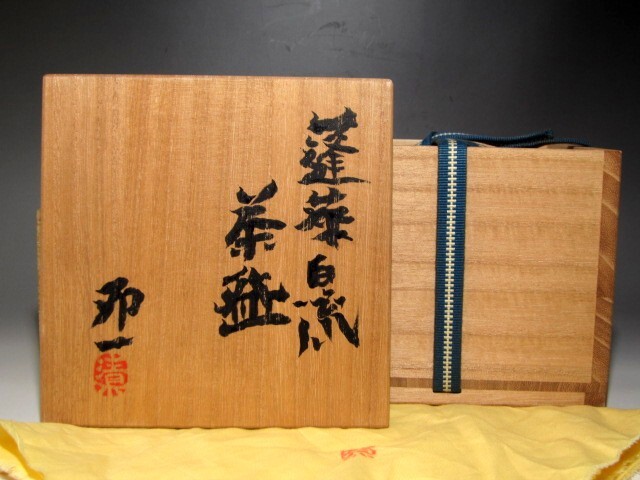 蓬莱白流
茶盌
卯一